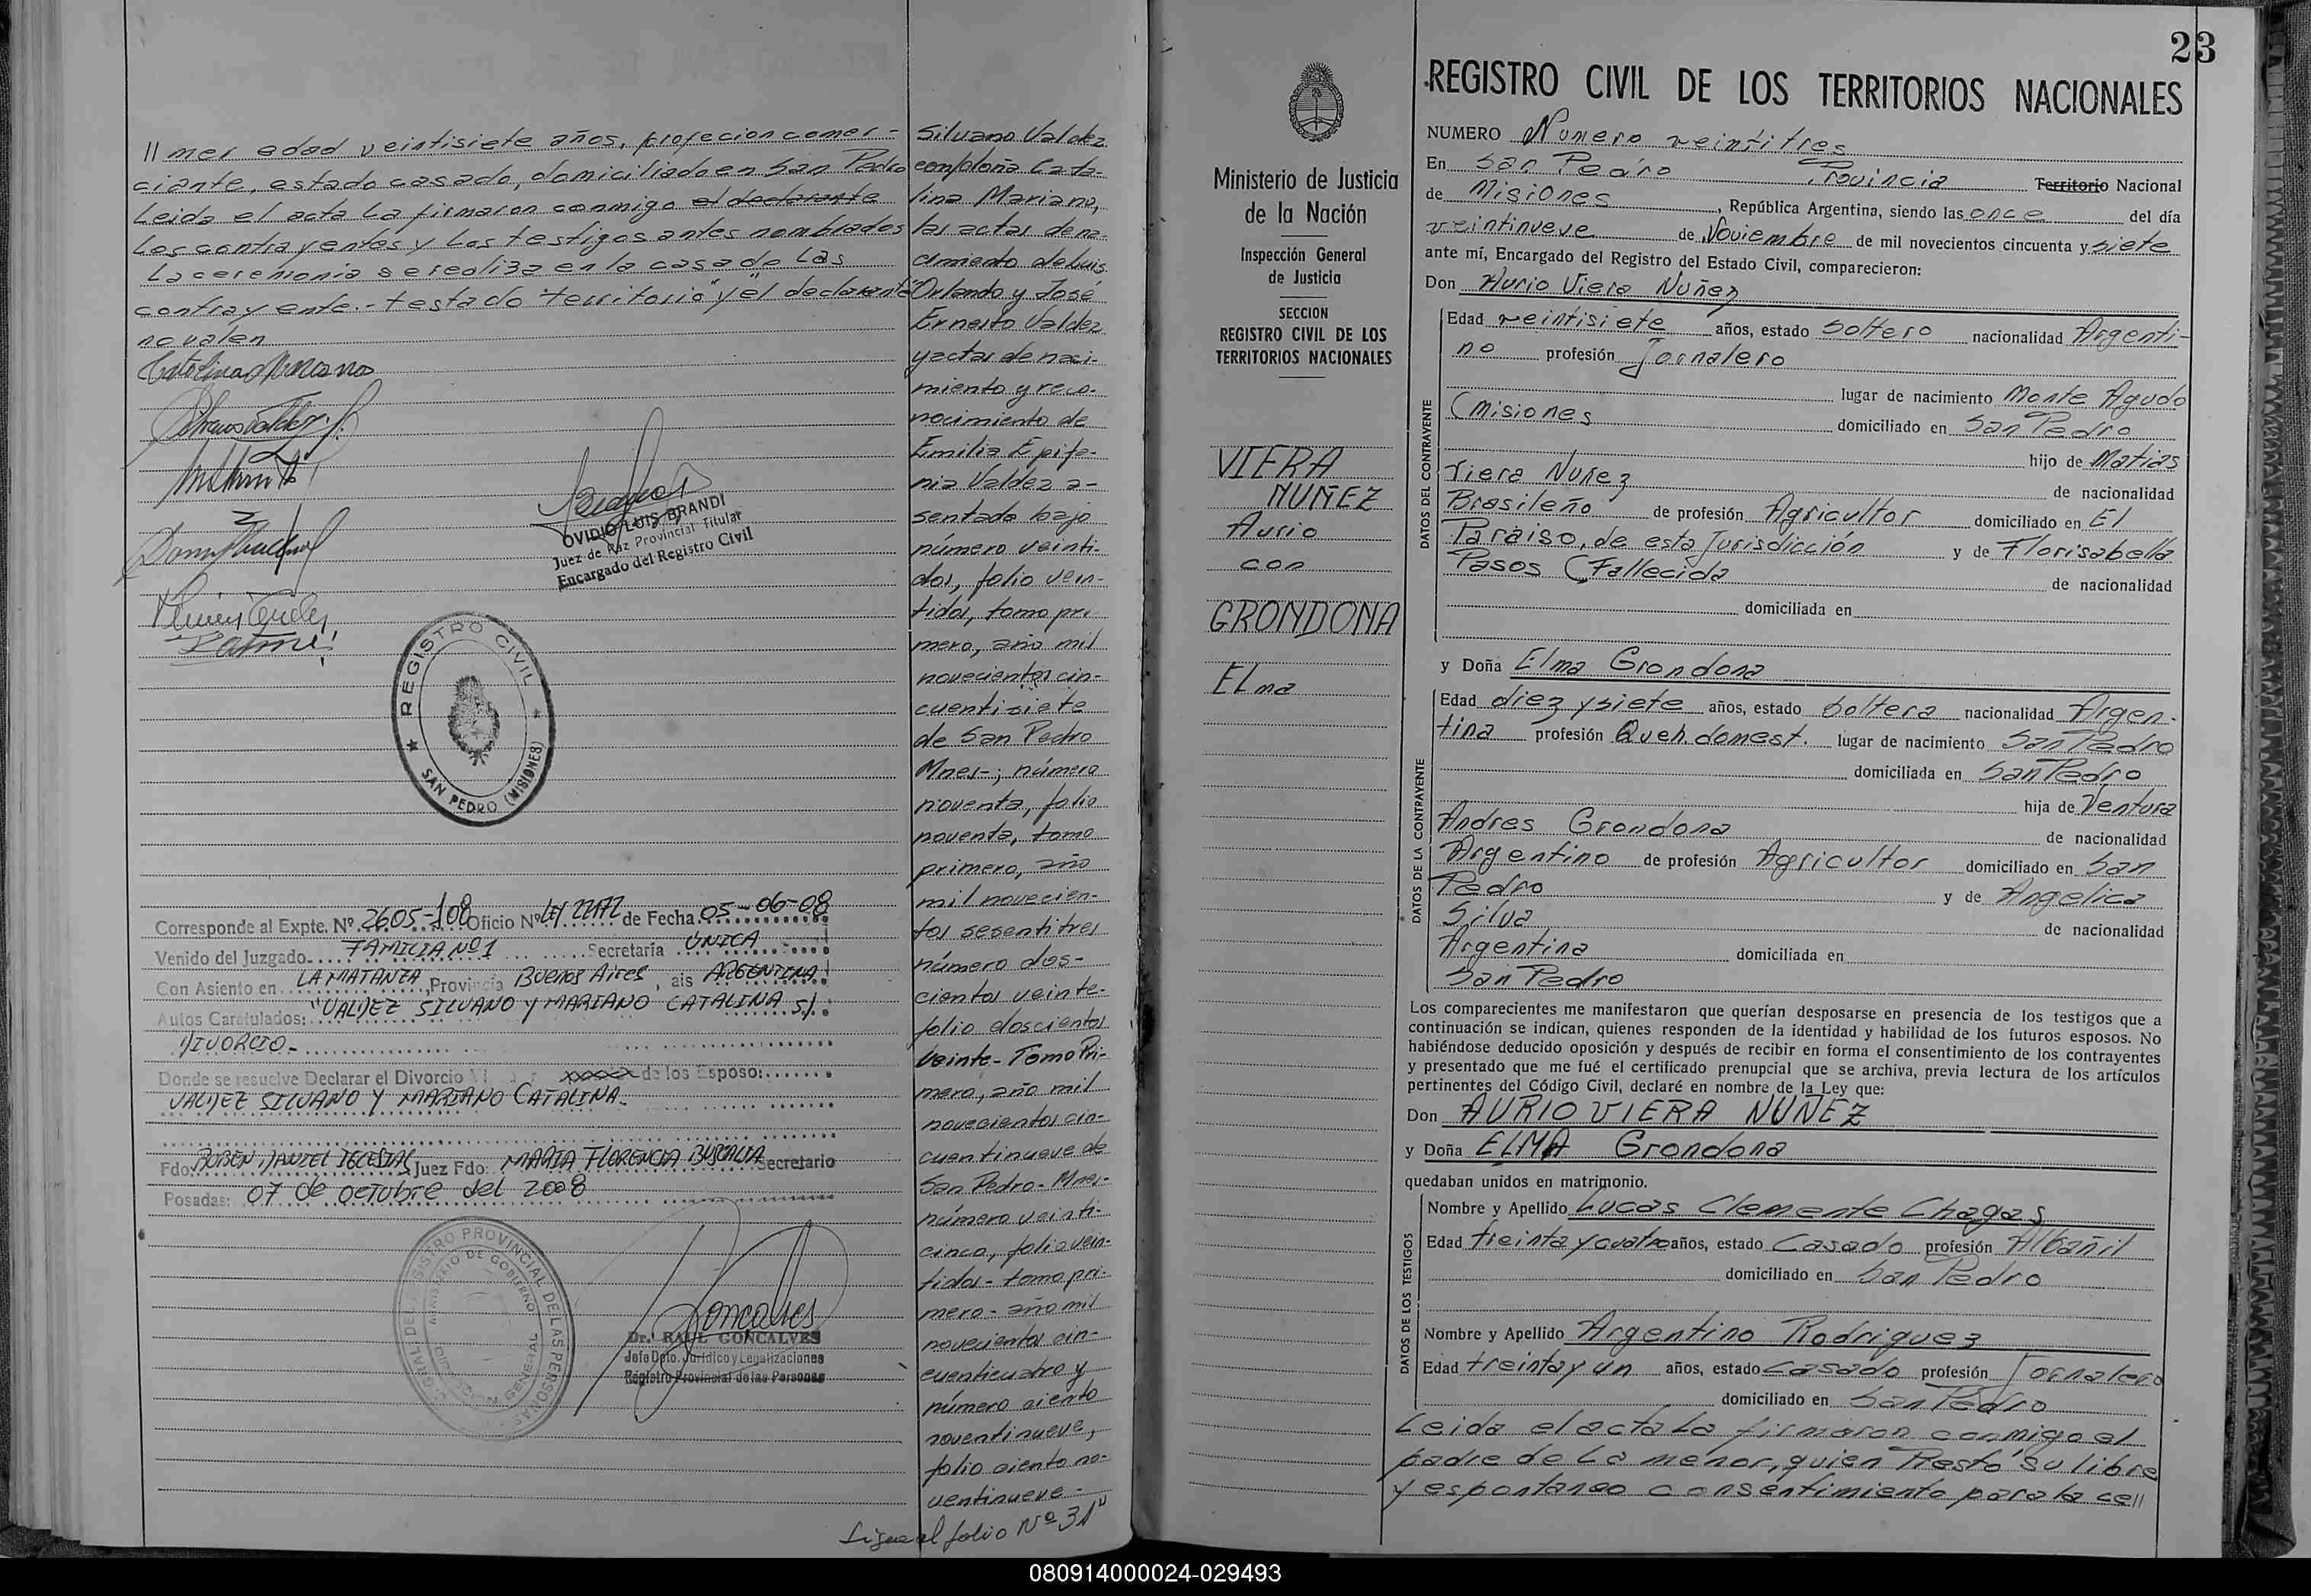 // mer edad veintisiete años, profecion comer-
ciante, estado casado, domiciliado en San Pedro
Leida el acta La firmaron conmigo el declarante
Los contrayentes y Los testigos antes nombrados
La ceremonia se realiza en la casa de Las
contrayente.- testado "territorio" y "el declarante"
no valen
Catalina Mariano
OVIDIO LUIS BRANDI
Juez de Paz Provincial Titular
Encargado del Registro Civil
REGISTRO CIVIL
SAN PEDRO (MISIONES)
Corresponde al Expte. Nº 2605-108 Oficio Nº LEY 22172 de Fecha 05-06-08
Venido del Juzgado FAMILIA Nº 1 Secretaría ÚNICA
Con Asiento en LA MATANZA, Provincia Buenos Aires, ais ARGENTINA
Autos Caratulados: "VALDEZ SILVANO Y MARIANO CATALINA S/.
DIVORCIO-
Donde se resuelve Declarar el Divorcio xxxxx de los Esposo:
VALDEZ SILVANO Y MARIANO CATALINA-
Fdo: RUBEN DANIEL IGLESIAS Juez Fdo: MARIA FLORENCIA Secretario
Posadas: 07 de octubre del 2008
REGISTRO PROVINCIAL DE LAS PERSONAS
MINISTERIO DE GOBIERNO
Dr. RAUL GONCALVES
Jefe Dpto. Jurídico y Legalizaciones
Registro Provincial de las Personas
Silvano Valdez
con doña Cata-
lina Mariano,
las actas de na-
cimiento de Luis
Orlando y José
Ernesto Valdez
y actas de naci-
miento y reco-
nocimiento de
Emilia Epife-
nia Valdez a-
sentado bajo
número veinti-
dos, folio vein-
tidos, tomo pri-
mero, año mil
novecientos cin-
cuentisiete
de San Pedro
Mnes-; número
noventa, folio
noventa, tomo
primero, año
mil novecien-
tos sesentitres
número dos-
cientos veinte-
folio doscientos
veinte- Tomo Pri-
mero, año mil
novecientos cin-
cuentinueve de
San Pedro- Mnes-
número veinti-
cinco, folio vein-
tidos- tomo pri-
mero- año mil
novecientos cin-
cuenticuatro y
número ciento
noventinueve,
folio ciento no-
ventinueve-
Sigue al folio Nº 31"
23
Ministerio de Justicia
de la Nación
Inspección General
de Justicia
SECCION
REGISTRO CIVIL DE LOS
TERRITORIOS NACIONALES
VIERA
NUÑEZ
Aurio
con
GRONDONA
ELma
REGISTRO CIVIL DE LOS TERRITORIOS NACIONALES
NUMERO Numero veintitres
En San Pedro Provincia Territorio Nacional
de Misiones, República Argentina, siendo las once del día
veintinueve de Noviembre de mil novecientos cincuenta y siete
ante mí, Encargado del Registro del Estado Civil, comparecieron:
Don Aurio Viera Nuñez
DATOS DEL CONTRAYENTE
Edad veintisiete años, estado Soltero nacionalidad Argenti-
no profesión Jornalero
lugar de nacimiento Monte Agudo
(Misiones domiciliado en San Pedro
hijo de Matias
Viera Nuñez de nacionalidad
Brasileño de profesión Agricultor domiciliado en El
Paraiso, de esta Jurisdicción y de Florisabella
Pasos (Fallecida de nacionalidad
domiciliada en
y Doña Elma Grondona
DATOS DE LA CONTRAYENTE
Edad diez y siete años, estado Soltera nacionalidad Argen-
tina profesión Queh. domest. lugar de nacimiento San Pedro
domiciliada en San Pedro
hija de Ventura
Andres Grondona de nacionalidad
Argentino de profesión Agricultor domiciliado en San
Pedro y de Angelica
Silva de nacionalidad
Argentina domiciliada en
San Pedro
Los comparecientes me manifestaron que querían desposarse en presencia de los testigos que a
continuación se indican, quienes responden de la identidad y habilidad de los futuros esposos. No
habiéndose deducido oposición y después de recibir en forma el consentimiento de los contrayentes
y presentado que me fué el certificado prenupcial que se archiva, previa lectura de los artículos
pertinentes del Código Civil, declaré en nombre de la Ley que:
Don AURIO VIERA NUÑEZ
y Doña ELMA Grondona
quedaban unidos en matrimonio.
DATOS DE LOS TESTIGOS
Nombre y Apellido Lucas Clemente Chagas
Edad treinta y cuatro años, estado Casado profesión Albañil
domiciliado en San Pedro
Nombre y Apellido Argentino Rodriguez
Edad treinta y un años, estado Casado profesión Jornalero
domiciliado en San Pedro
Leida el acta La firmaron conmigo el
padre de La menor, quien Prestó su libre
y espontaneo consentimiento para la ce//
080914000024-029493